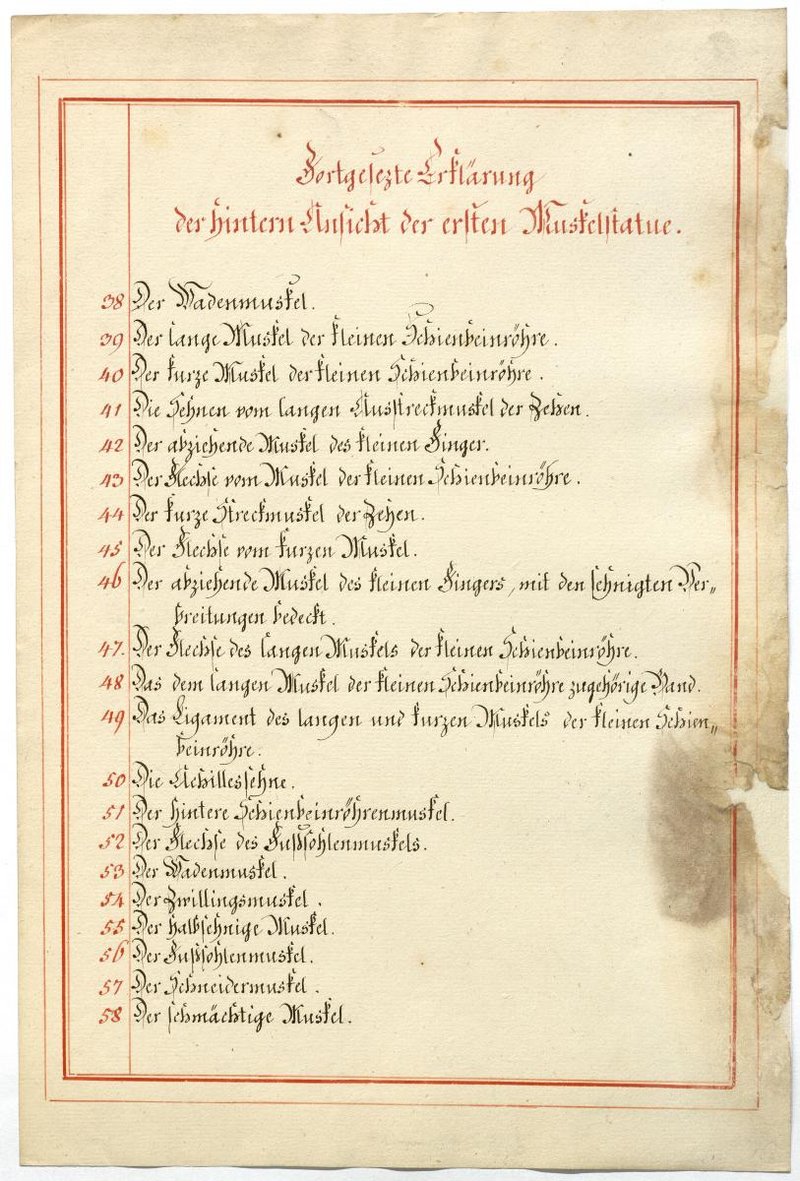 Fortgesezte Erklärung
der hintern Ansicht der ersten Muskelstatue.
38 Der Wadenmuskel.
39 Der lange Muskel der kleinen Schienbeinröhre.
40 Der kurze Muskel der kleinen Schienbeinröhre.
41 Die Sehnen vom langen Ausstreckmuskel der Zehen.
42 Der abziehende Muskel des kleinen Finger.
43 Der Flechse vom Muskel der kleinen Schienbeinröhre.
44 Der kurze Streckmuskel der Zehen.
45 Der Flechse vom kurzen Muskel.
46 Der abziehende Muskel des kleinen Fingers, mit den sehnigten Ver„
breitungen bedeckt.
47. Der Flechse des langen Muskels der kleinen Schienbeinröhre.
48 Das dem langen Muskel der kleinen Schienbeinröhre zugehörige Band.
49 Das Ligament des langen und kurzen Muskels der kleinen Schien„
beinröhre.
50 Die Achillessehne.
51 Der hintere Schienbeinröhrenmuskel.
52 Der Flechse des Fußsohlenmuskels.
53 Der Wadenmuskel.
54 Der Zwillingsmuskel.
55 Der halbsehnige Muskel.
56 Der Fußsohlenmuskel.
57 Der Schneidermuskel.
58 Der schmächtige Muskel.